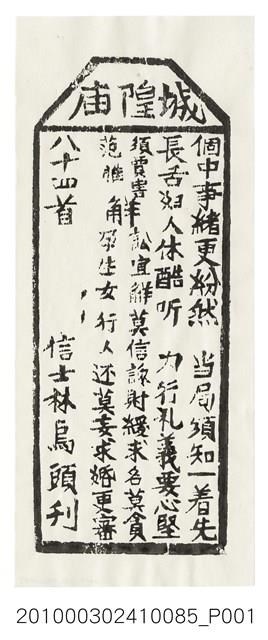 城隍庙
個中事緒更紛然　当局須知一着先
長舌妇人休酷听　力行礼義要心堅
須賈害范雎
解
訟宜解莫信誘財緩求名莫貪
孕生女行人还莫妄求婚更審
八十四首　信士林烏頭刋
201000302410085_P001